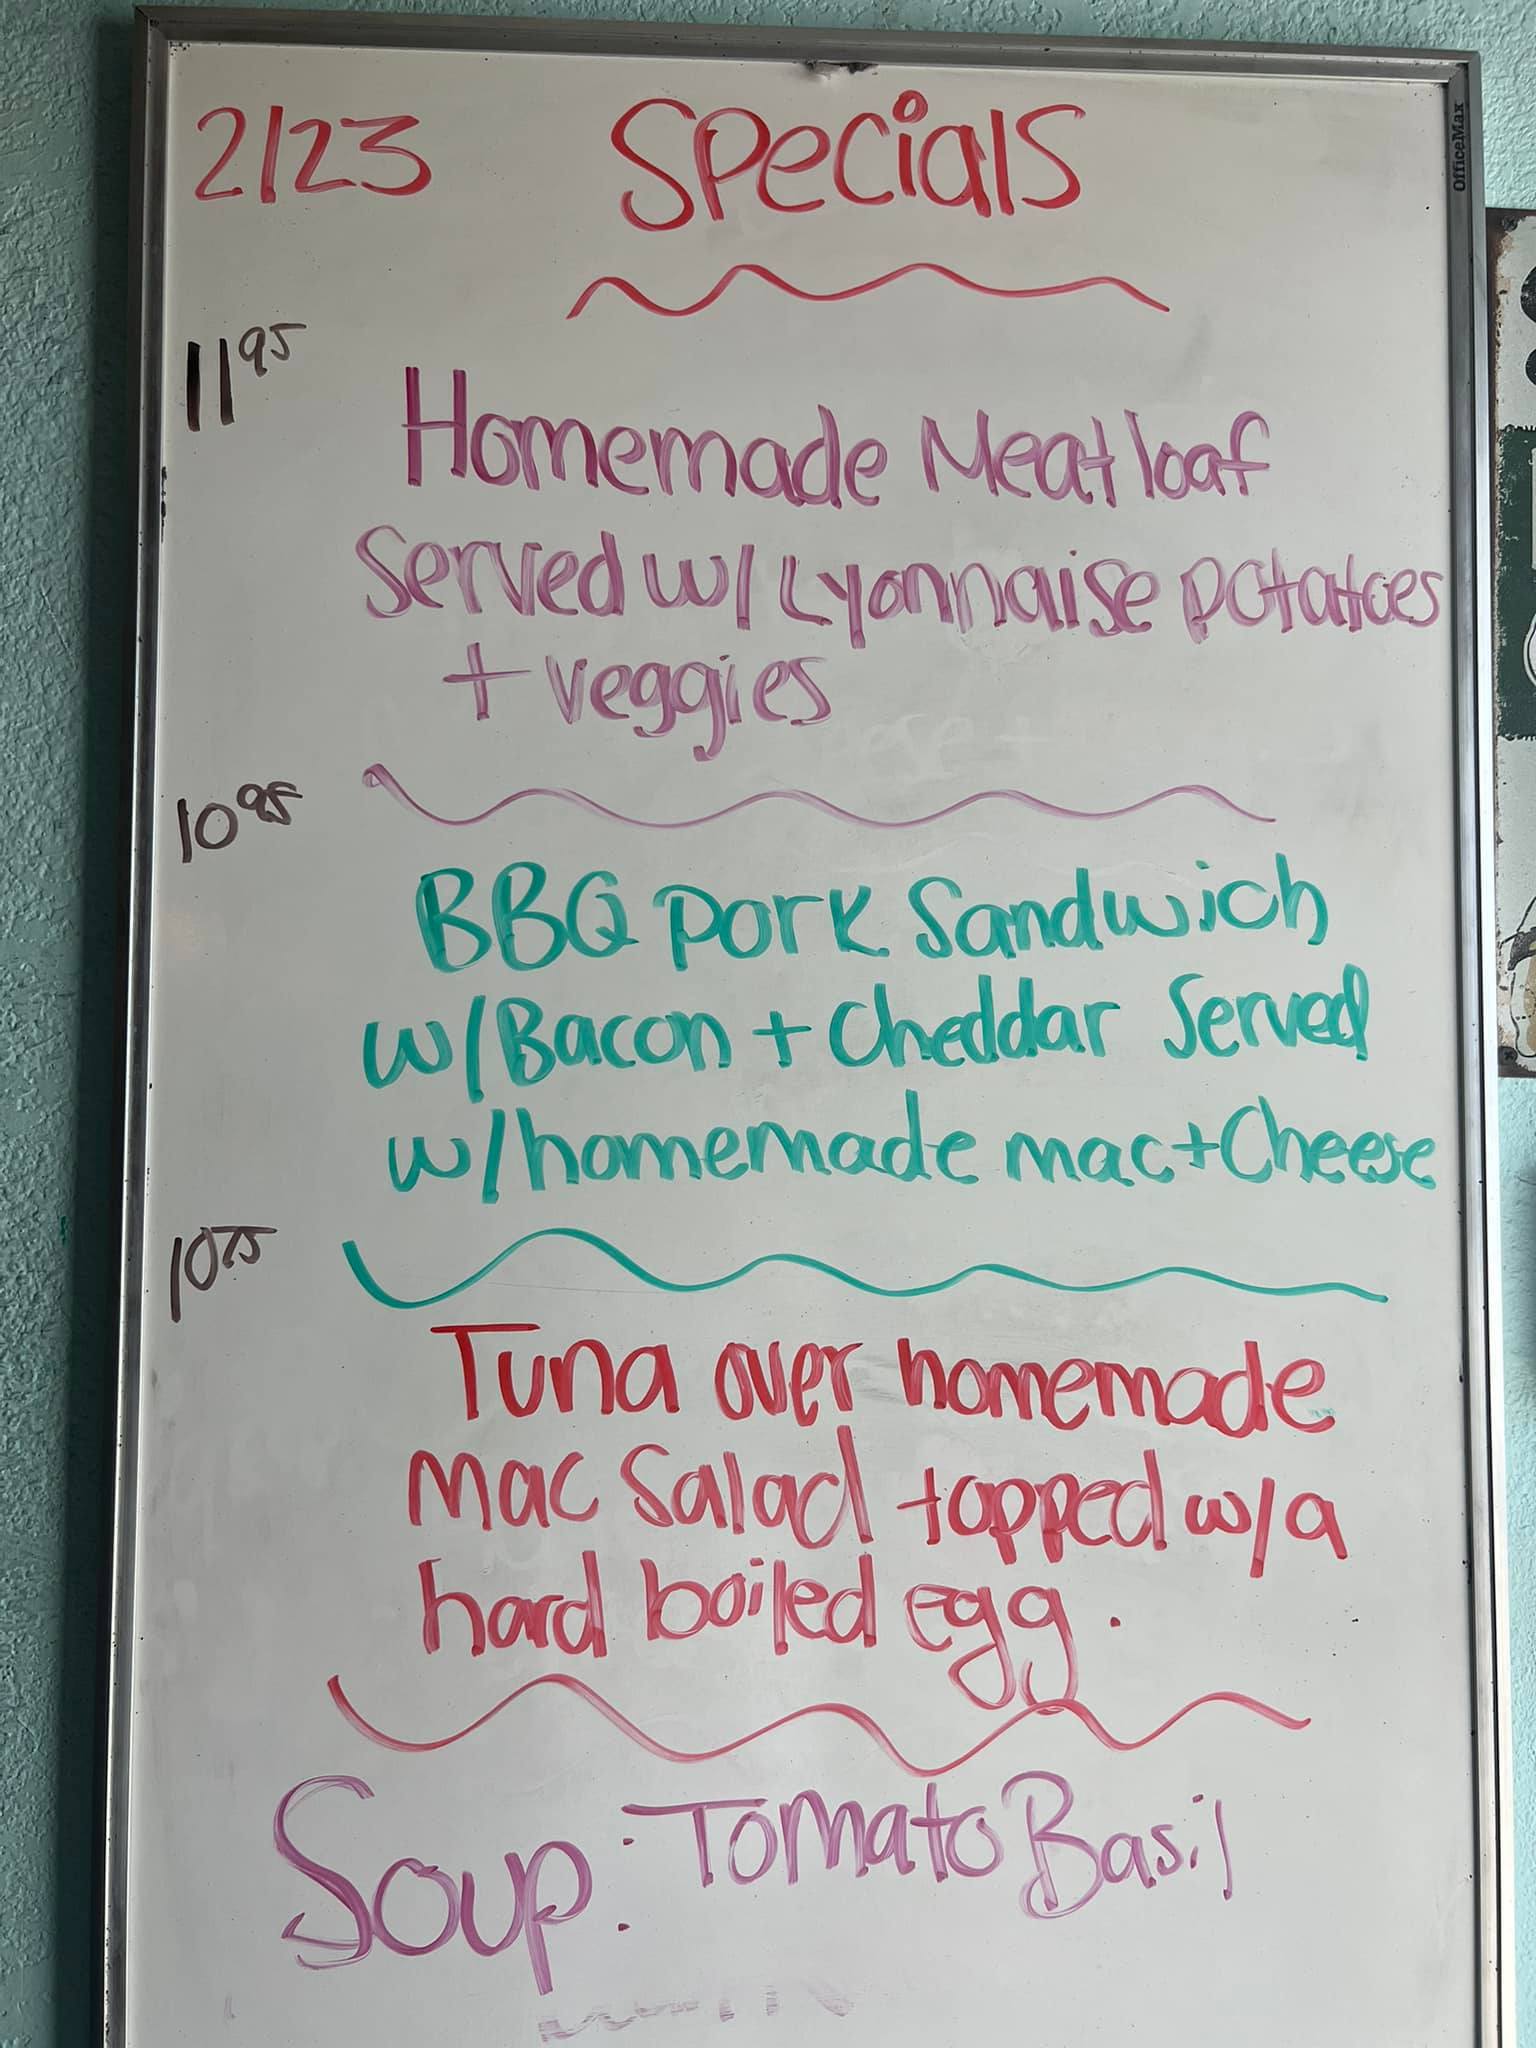 2/23 Specials
11 95
Homemade Meatloaf
Served w/ Lyonnaise potatoes
+ veggies
10 95
BBQ pork Sandwich
w/Bacon + Cheddar Served
w/homemade mac+Cheese
10 75
Tuna over homemade
mac Salad topped w/a
hard boiled egg.
Soup: Tomato Basil
OfficeMax